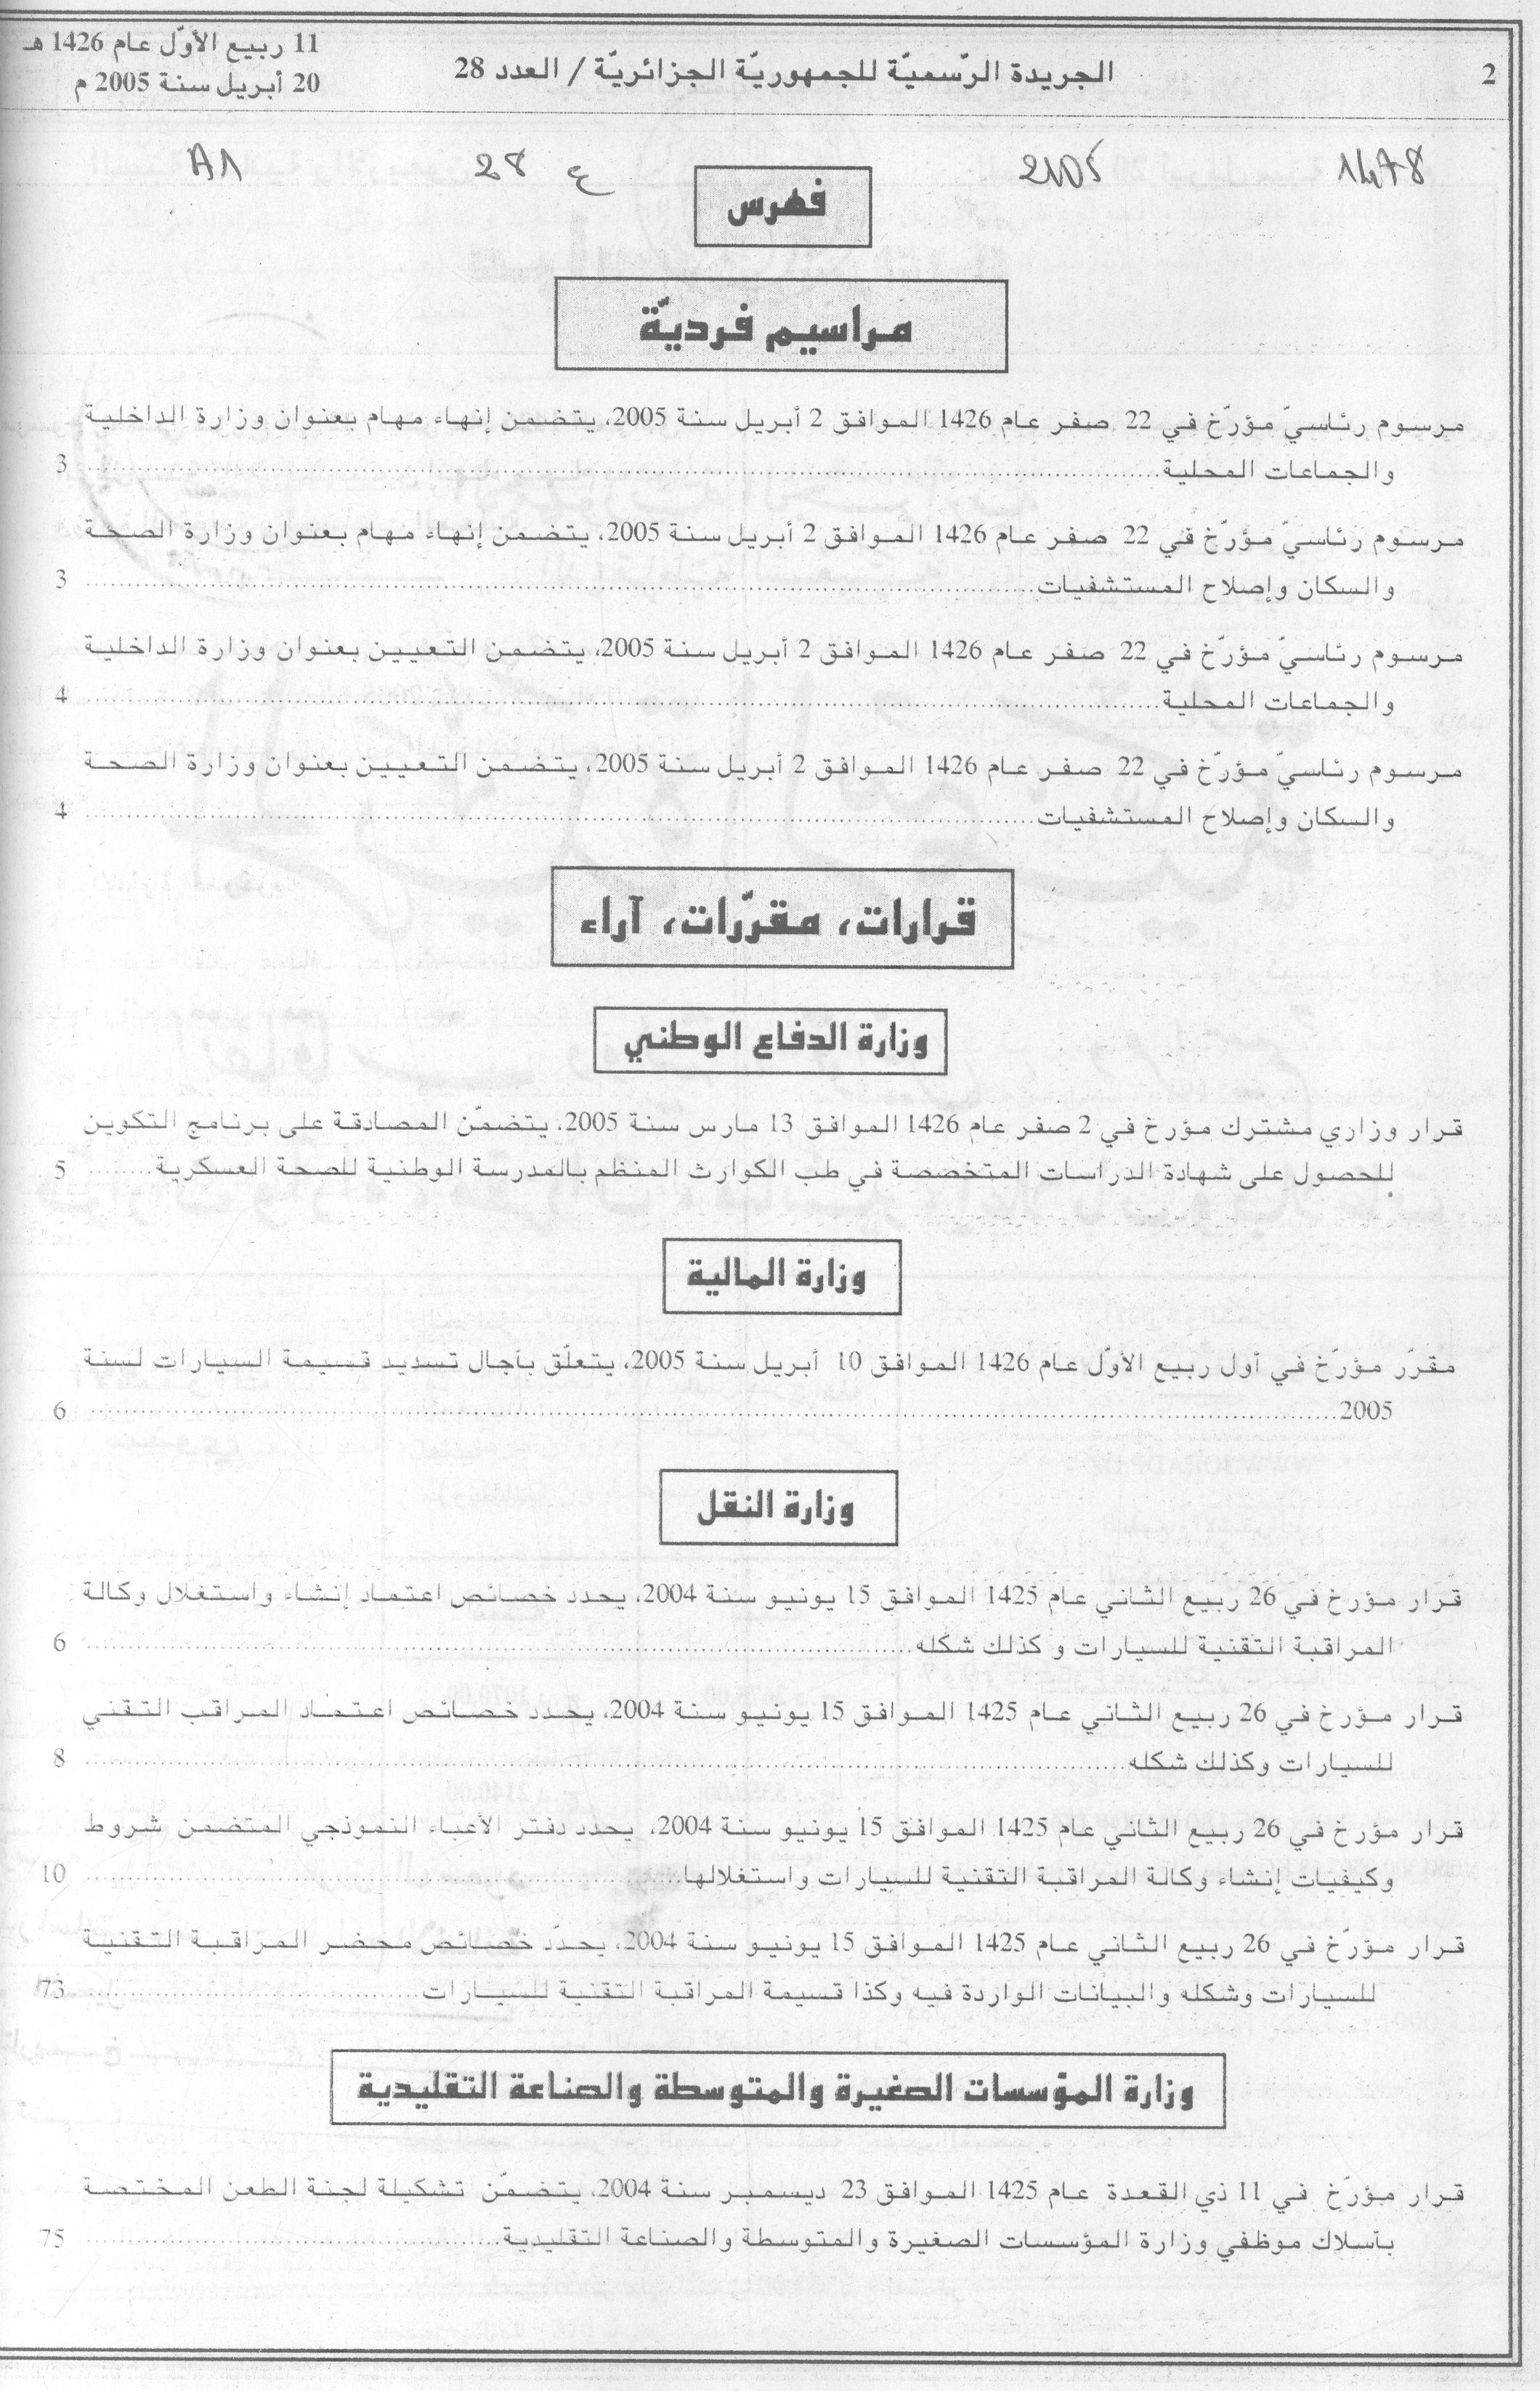 2
الجريدة الرّسميّة للجمهوريّة الجزائريّة / العدد 28
11 ربيع الأوّل عام 1426 هـ
20 أبريل سنة 2005 م
1478
2105
ع 28
A1
فهرس
مراسيم فرديّة
مرسوم رئاسيّ مؤرّخ في 22 صفر عام 1426 الموافق 2 أبريل سنة 2005، يتضمن إنهاء مهام بعنوان وزارة الداخلية
والجماعات المحلية ........ 3
مرسوم رئاسيّ مؤرّخ في 22 صفر عام 1426 الموافق 2 أبريل سنة 2005، يتضمن إنهاء مهام بعنوان وزارة الصحة
والسكان وإصلاح المستشفيات ........ 3
مرسوم رئاسيّ مؤرّخ في 22 صفر عام 1426 الموافق 2 أبريل سنة 2005، يتضمن التعيين بعنوان وزارة الداخلية
والجماعات المحلية ........ 4
مرسوم رئاسيّ مؤرّخ في 22 صفر عام 1426 الموافق 2 أبريل سنة 2005، يتضمن التعيين بعنوان وزارة الصحة
والسكان وإصلاح المستشفيات ........ 4
قرارات، مقرّرات، آراء
وزارة الدفاع الوطني
قرار وزاري مشترك مؤرخ في 2 صفر عام 1426 الموافق 13 مارس سنة 2005، يتضمّن المصادقة على برنامج التكوين
للحصول على شهادة الدراسات المتخصصة في طب الكوارث المنظم بالمدرسة الوطنية للصحة العسكرية ........ 5
وزارة المالية
مقرّر مؤرّخ في أول ربيع الأوّل عام 1426 الموافق 10 أبريل سنة 2005، يتعلّق بآجال تسديد قسيمة السيارات لسنة
2005 ........ 6
وزارة النقل
قرار مؤرخ في 26 ربيع الثاني عام 1425 الموافق 15 يونيو سنة 2004، يحدد خصائص اعتماد إنشاء واستغلال وكالة
المراقبة التقنية للسيارات و كذلك شكله ........ 6
قرار مؤرخ في 26 ربيع الثاني عام 1425 الموافق 15 يونيو سنة 2004، يحدد خصائص اعتماد المراقب التقني
للسيارات وكذلك شكله ........ 8
قرار مؤرخ في 26 ربيع الثاني عام 1425 الموافق 15 يونيو سنة 2004، يحدد دفتر الأعباء النموذجي المتضمن شروط
وكيفيات إنشاء وكالة المراقبة التقنية للسيارات واستغلالها ........ 10
قرار مؤرّخ في 26 ربيع الثاني عام 1425 الموافق 15 يونيو سنة 2004، يحدّد خصائص محضر المراقبة التقنية
للسيارات وشكله والبيانات الواردة فيه وكذا قسيمة المراقبة التقنية للسيارات ........ 73
وزارة المؤسسات الصغيرة والمتوسطة والصناعة التقليدية
قرار مؤرّخ في 11 ذي القعدة عام 1425 الموافق 23 ديسمبر سنة 2004، يتضمّن تشكيلة لجنة الطعن المختصة
بأسلاك موظفي وزارة المؤسسات الصغيرة والمتوسطة والصناعة التقليدية ........ 75